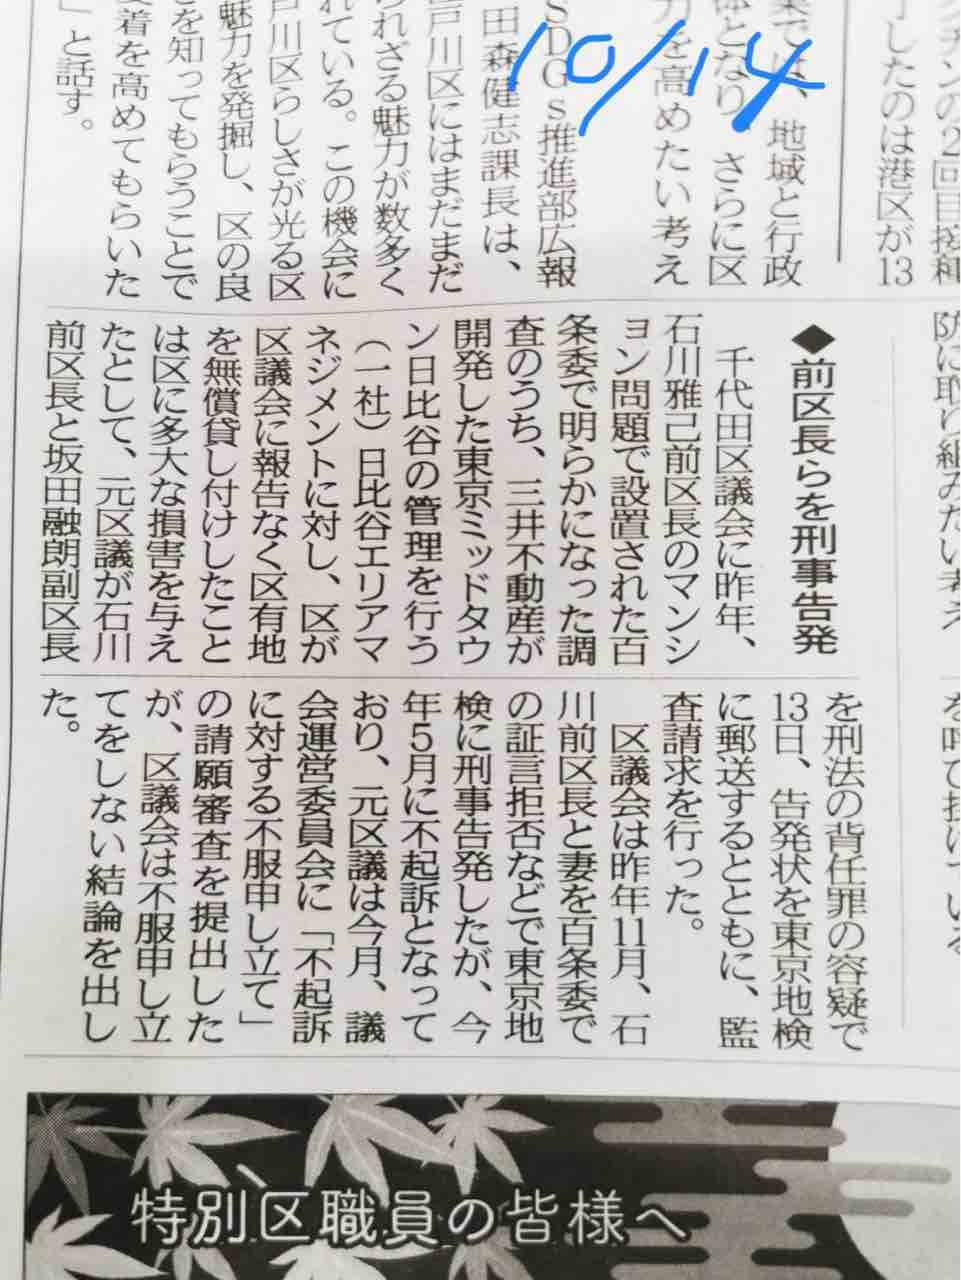 10/14
クチンの2回目接種
了したのは港区が13
業では、地域と行政
体となり、さらに区
力を高めたい考え
SDGs推進部広報
田森健志課長は、
戸川区にはまだまだ
られざる魅力が数多く
れている。この機会に
戸川区らしさが光る区
魅力を発掘し、区の良
を知ってもらうことで
愛着を高めてもらいた
」と話す。
防に取り組みたい考え
◆前区長らを刑事告発
千代田区議会に昨年、
石川雅己前区長のマンシ
ョン問題で設置された百
条委で明らかになった調
査のうち、三井不動産が
開発した東京ミッドタウ
ン日比谷の管理を行う
（一社）日比谷エリアマ
ネジメントに対し、区が
区議会に報告なく区有地
を無償貸し付けしたこと
は区に多大な損害を与え
たとして、元区議が石川
前区長と坂田融朗副区長
を刑法の背任罪の容疑で
13日、告発状を東京地検
に郵送するとともに、監
査請求を行った。
区議会は昨年11月、石
川前区長と妻を百条委で
の証言拒否などで東京地
検に刑事告発したが、今
年5月に不起訴となって
おり、元区議は今月、議
会運営委員会に「不起訴
に対する不服申し立て」
の請願審査を提出した
が、区議会は不服申し立
てをしない結論を出し
た。
特別区職員の皆様へ